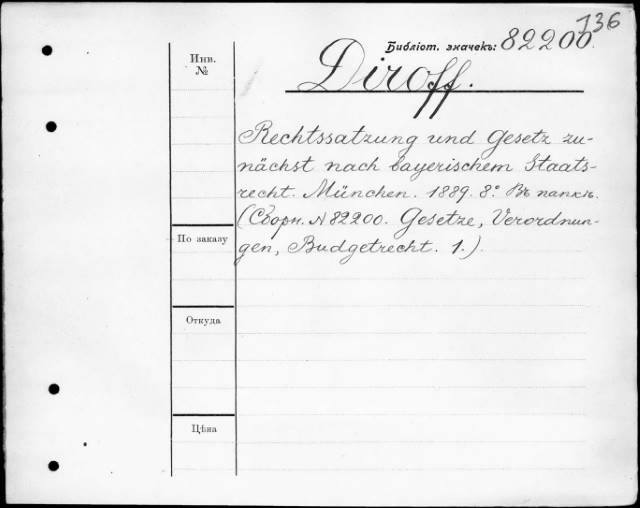 136
Библіот. значекъ: 82200.
Инв.
№
Diroff.
Rechtssatzung und Gesetz zu-
nächst nach bayerischem Staats-
recht. München. 1889. 8° Въ папкѣ.
(Сборн. № 82200. Gesetze, Verordnun-
По заказу
gen, Budgetrecht. 1.)
Откуда
Цѣна